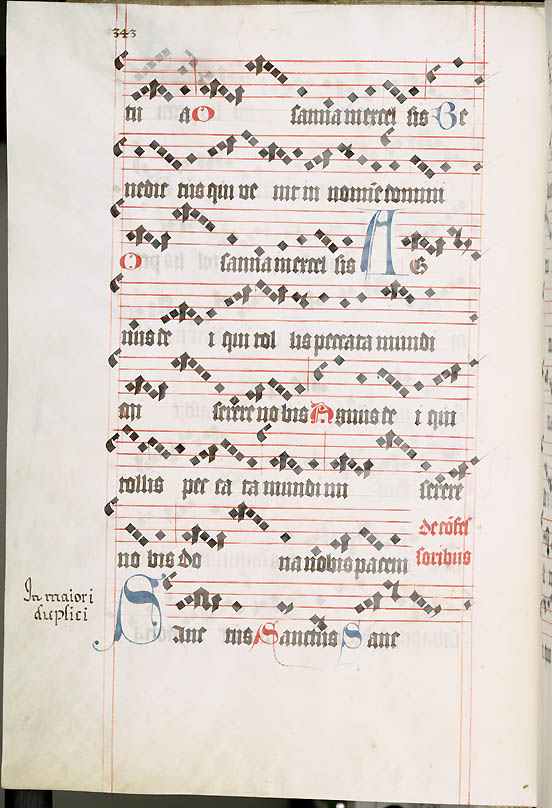 343
ni a O sanna in excel sis Be
nedic tus qui ve nit in nomine domini
O sanna in excel sis A G
nus de i qui tol lis peccata mundi
mi serere no bis Agnus de i qui
tollis pec ca ta mundi mi serere
no bis Do na nobis pacem
De cōfes
soribus
In maiori
duplici
Sanc tus Sanctus Sanc